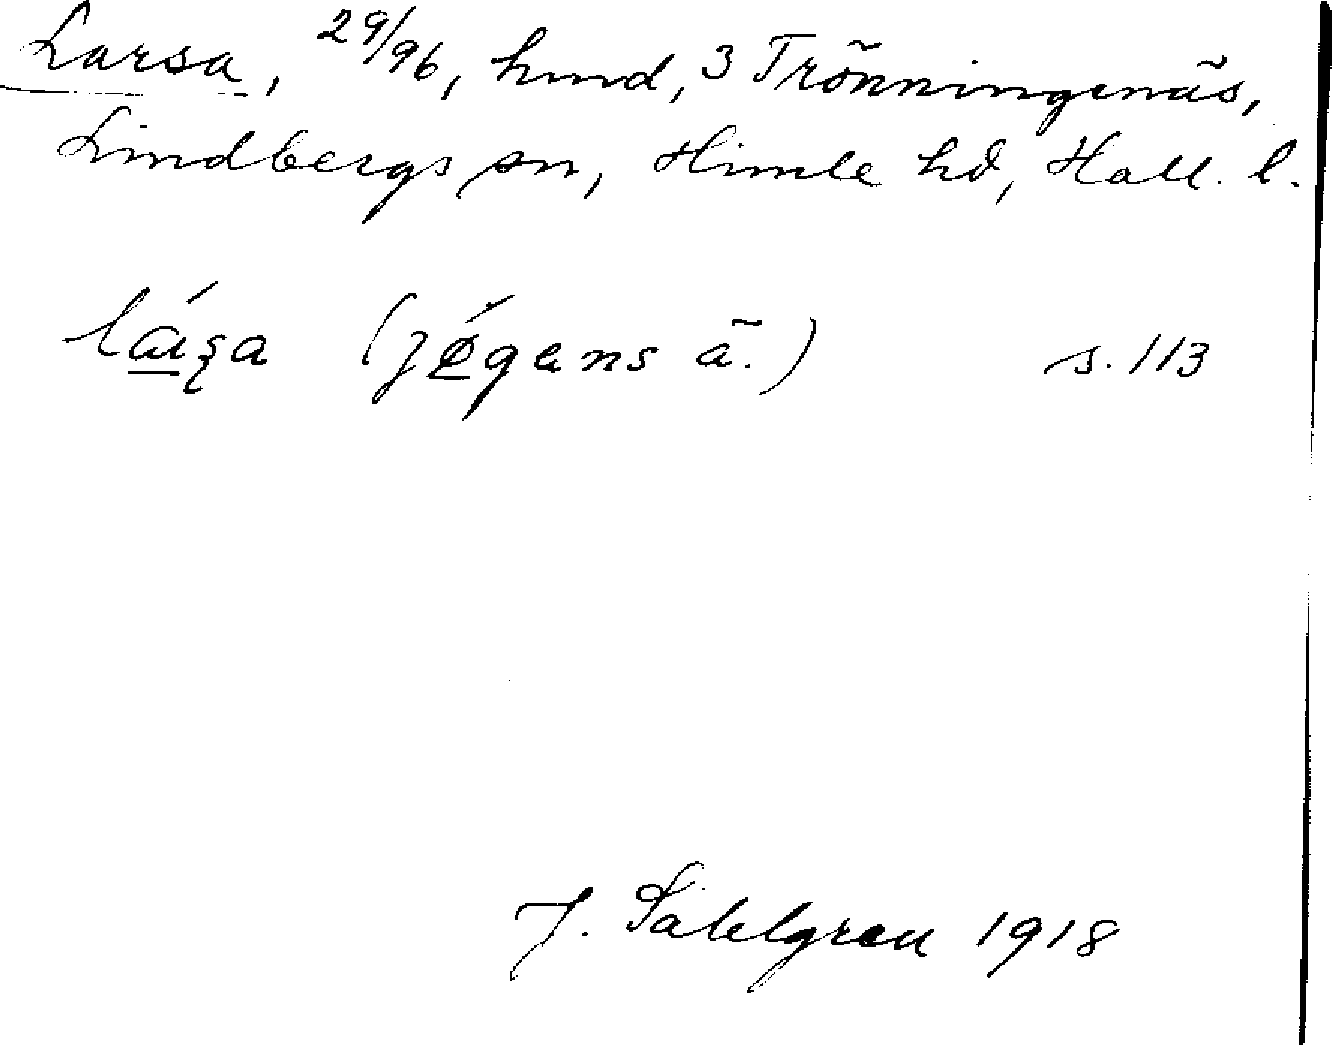 Larsa, 29/96, hmd, 3 Trönningenäs,
Lindbergs sn, Himle hd, Hall. l.
s. 113
J. Sahlgren 1918